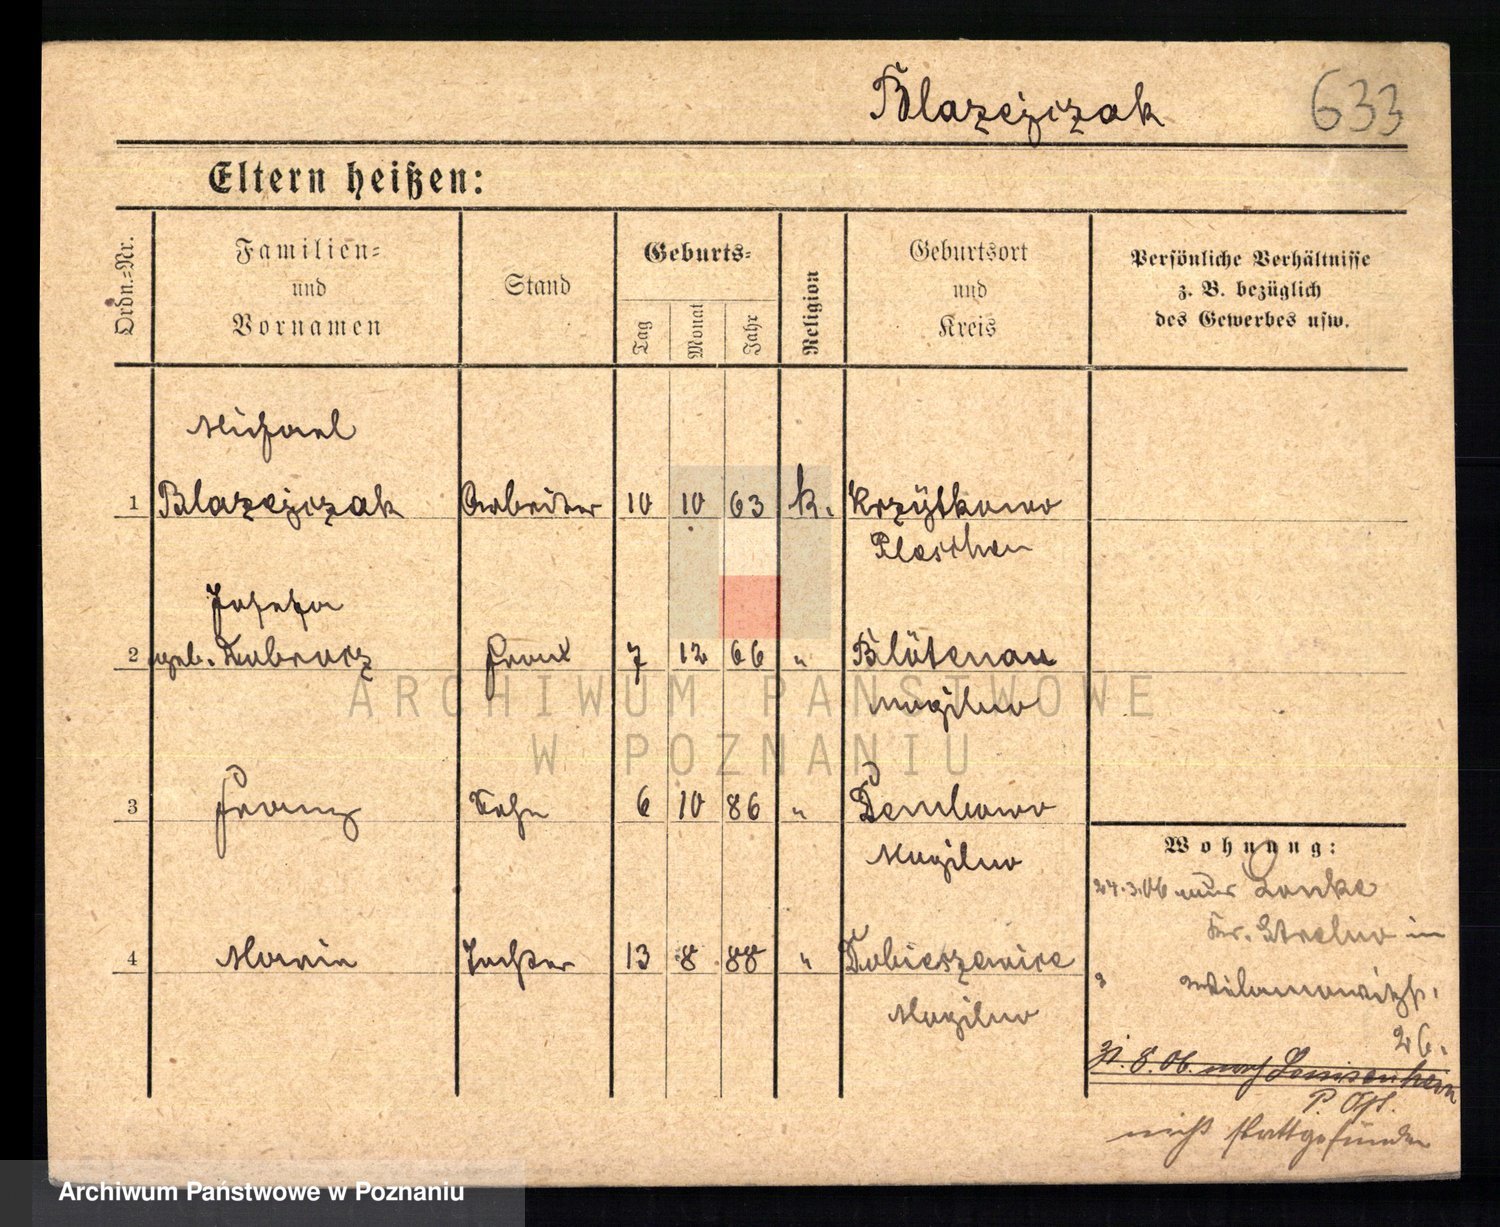 Blazejczak 633
Eltern heißen:
Ordn.-Nr.
Familien-
und
Vornamen
Stand
Geburts-
Tag
Monat
Jahr
Religion
Geburtsort
und
Kreis
Persönliche Verhältnisse
z. B. bezüglich
des Gewerbes usw.
Michael
1 Blazejczak Arbeiter 10 10 63 k.
Pleschen
Josefa
2 geb. Frau 7 12 66 " Blütenau
Mogilno
3 Franz Sohn 6 10 86 " Dembowo
Mogilno
4 Maria Tochter 13 8 88 " Tobieszewice
Mogilno
Wohnung:
24.3.06 aus Lonke
Kr. Strelno in
26.
31.8.06. nach Louisenhain
P. Ost.
nicht stattgefunden
ARCHIWUM PAŃSTWOWE
W POZNANIU
Archiwum Państwowe w Poznaniu